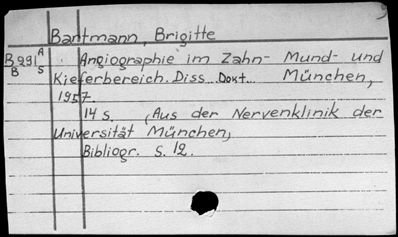 Bartmann, Brigitte
B 991 A
B S
Angiographie im Zahn- Mund- und
Kieferbereich. Diss. Dokt. München,
1957.
14 S. (Aus der Nervenklinik der
Universität München,
Bibliogr. S. 12.